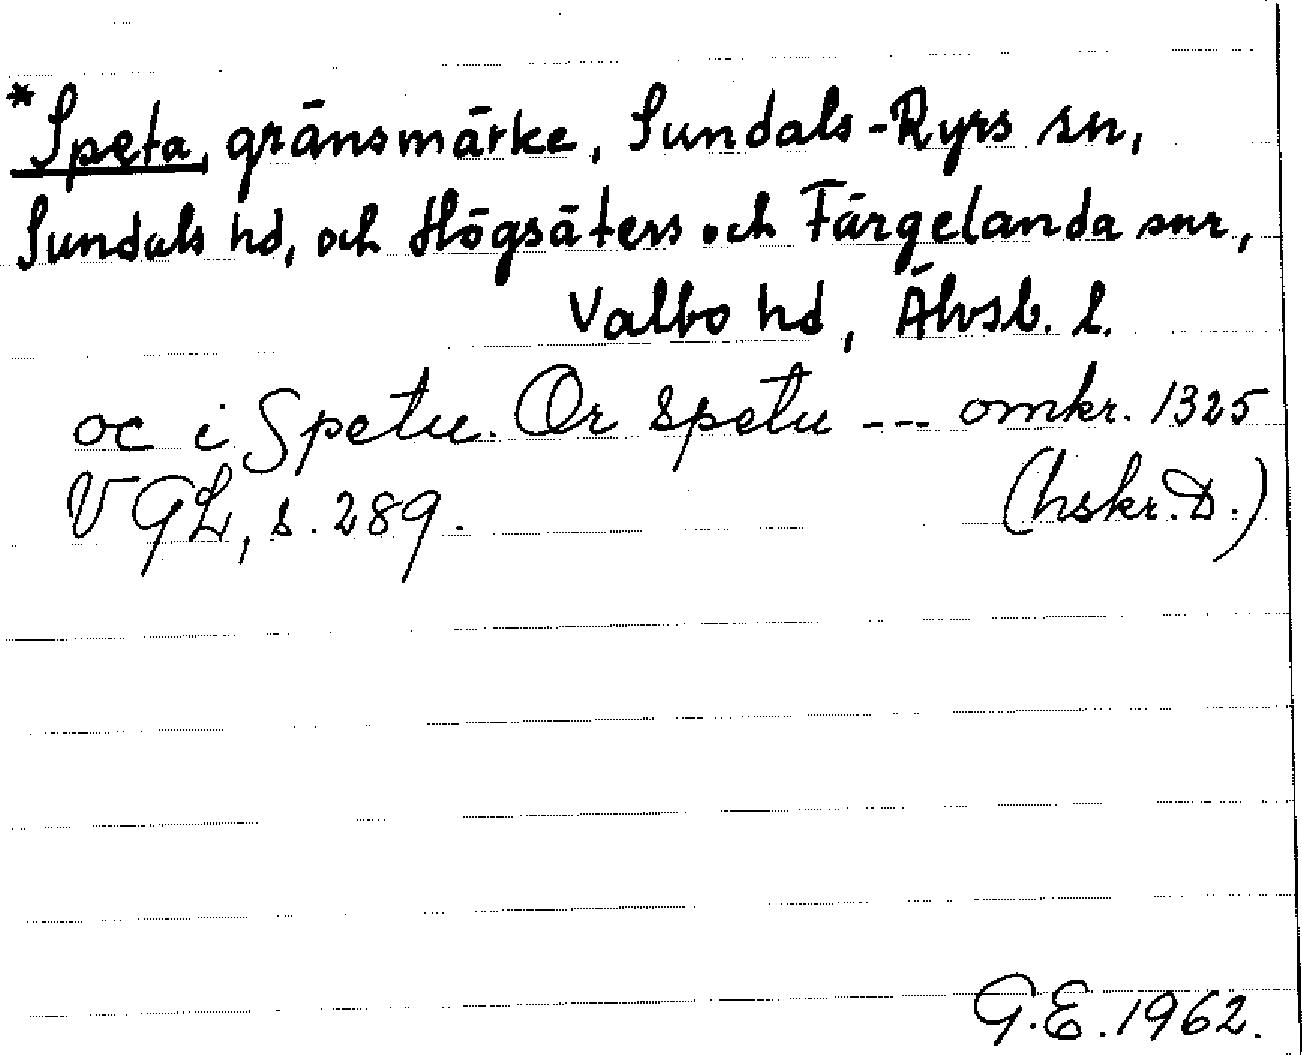 *Speta, gränsmärke, Sundals-Ryrs sn,
Sundals hd, och Högsäters och Färgelanda snr,
Valbo hd, Älvsb. l.
oc i Spetu. Or spetu --- omkr. 1325
VGL, s. 289. (hskr. D.)
G.E. 1962.